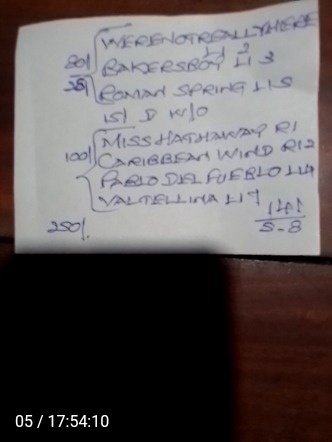 WERENOTREALLYHERE
L1 2
80/ BAKERSBOY L1 3
25/ ROMAN SPRING L1S
ISt D W/O
MISS HATHAWAY R1
100/ CARIBBEAN WIND R12
PABLO DEL PUEBLO L14
VALTELLINA L19
250/.
1411
5-8
05 / 17:54:10